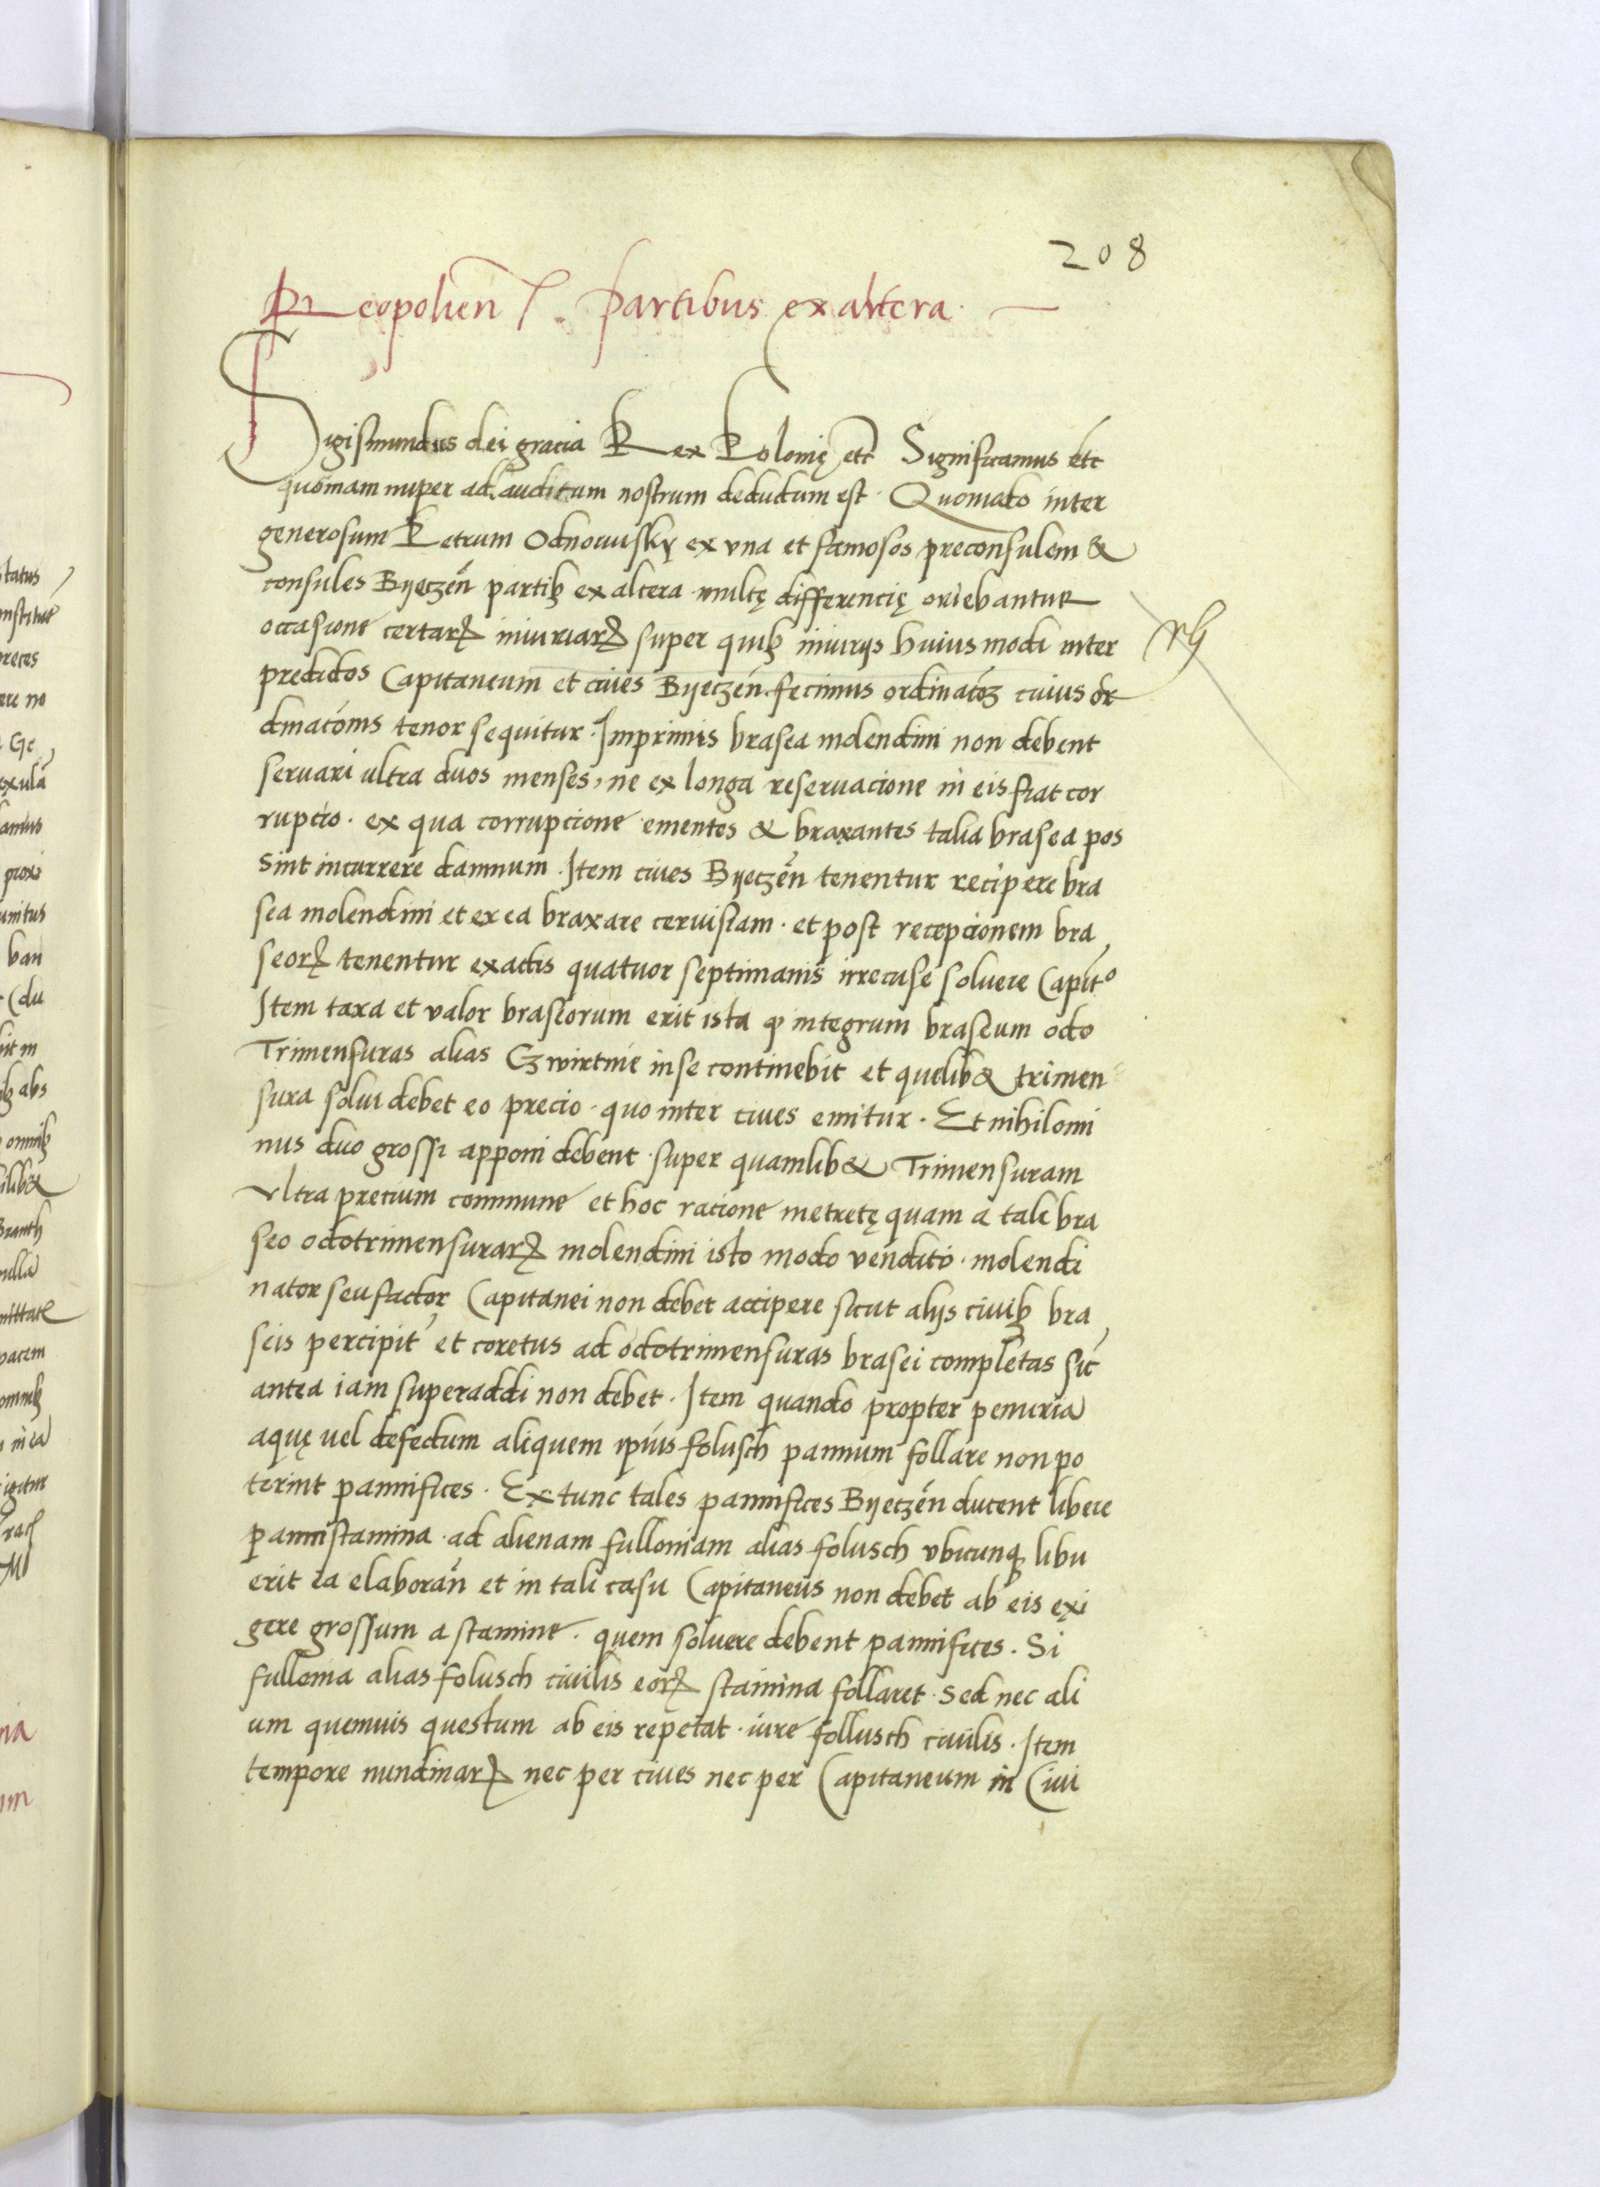 208
Neopolien partibus ex altera
Sigismundus dei gracia Rex Polonię etc Significamus etc
quoniam nuper ad auditum nostrum deductum est. Quomodo inter
generosum Petrum Odnowsky ex vna et famosos preconsulem &
consules Byeczen̄ partibꝫ ex altera multę differencię oriebantur
occasione certarꝝ iniuriarꝝ super quibꝫ iniurijs huiusmodi inter
predictos Capitaneum et ciues Byeczen̄ fecimus ordinatōꝫ cuius or
dinatōnis tenor sequitur. Imprimis brasea molendini non debent
seruari vltra duos menses, ne ex longa reseruacione in eis fiat cor
rupcio. ex qua corrupcione ementes & braxantes talia brasea pos
sint incurrere damnum. Item ciues Byeczen̄ tenentur recipere bra
sea molendini et ex ea braxare ceruisiam. et post recepcionem bra
seorꝝ tenentur exactis quatuor septimanis irrecuse soluere Capitᵒ
Item taxa et valor brasiorum erit ista ꝙ integrum braseum octo
Trimensuras alias Czwirtnie in se continebit et quelib& trimen
sura solui debet eo precio. quo inter ciues emitur. Et nihilomi
nus duo grossi apponi debent super quamlib& Trimensuram
vltra precium commune et hoc racione metretę quam a tali bra
seo octotrimensurarꝝ molendini isto modo vendito. molendi
nator seu factor Capitanei non debet accipere sicut alijs ciuibꝫ bra
seis percipit et coretus ad octotrimensuras brasei completas sic̄
antea iam superaddi non debet. Item quando propter penuria
aquę vel defectum aliquem ip̄ius folusch pannum follare non po
terint pannifices. Ex tunc tales pannifices Byeczen̄ ducent libere
panni stamina. ad alienam fulloniam alias folusch vbicunqꝫ libu
erit ea elaboran̄ et in tali casu Capitaneus non debet ab eis exi
gere grossum a stamine. quem soluere debent pannifices. Si
fullonia alias folusch ciuilis eorꝝ stamina follaret. Sed nec ali
um quemuis questum ab eis repetat. iure follusch ciuilis. Item
tempore nundinarꝝ nec per ciues nec per Capitaneum in Ciui